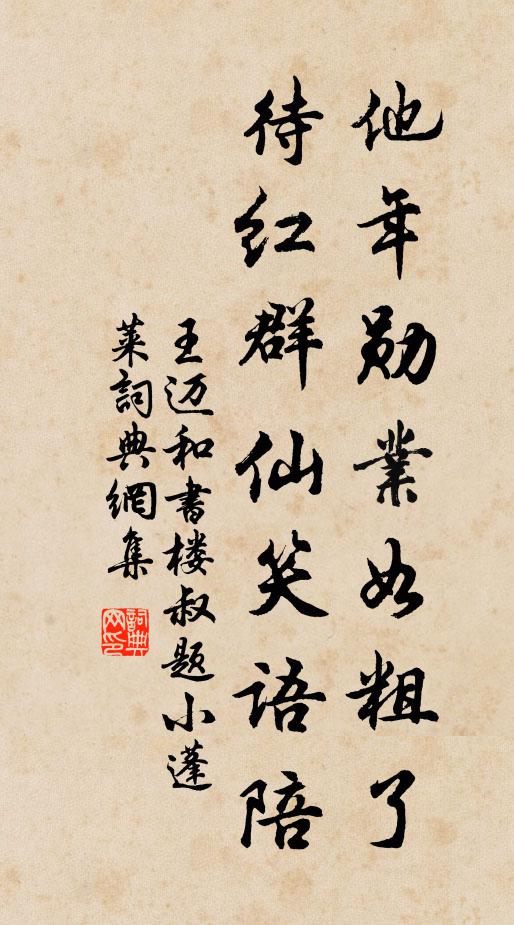 他年勋業如粗了
待红群仙笑語陪
王迈和書楼叔题小蓬
莱詞典網集
詞典网印